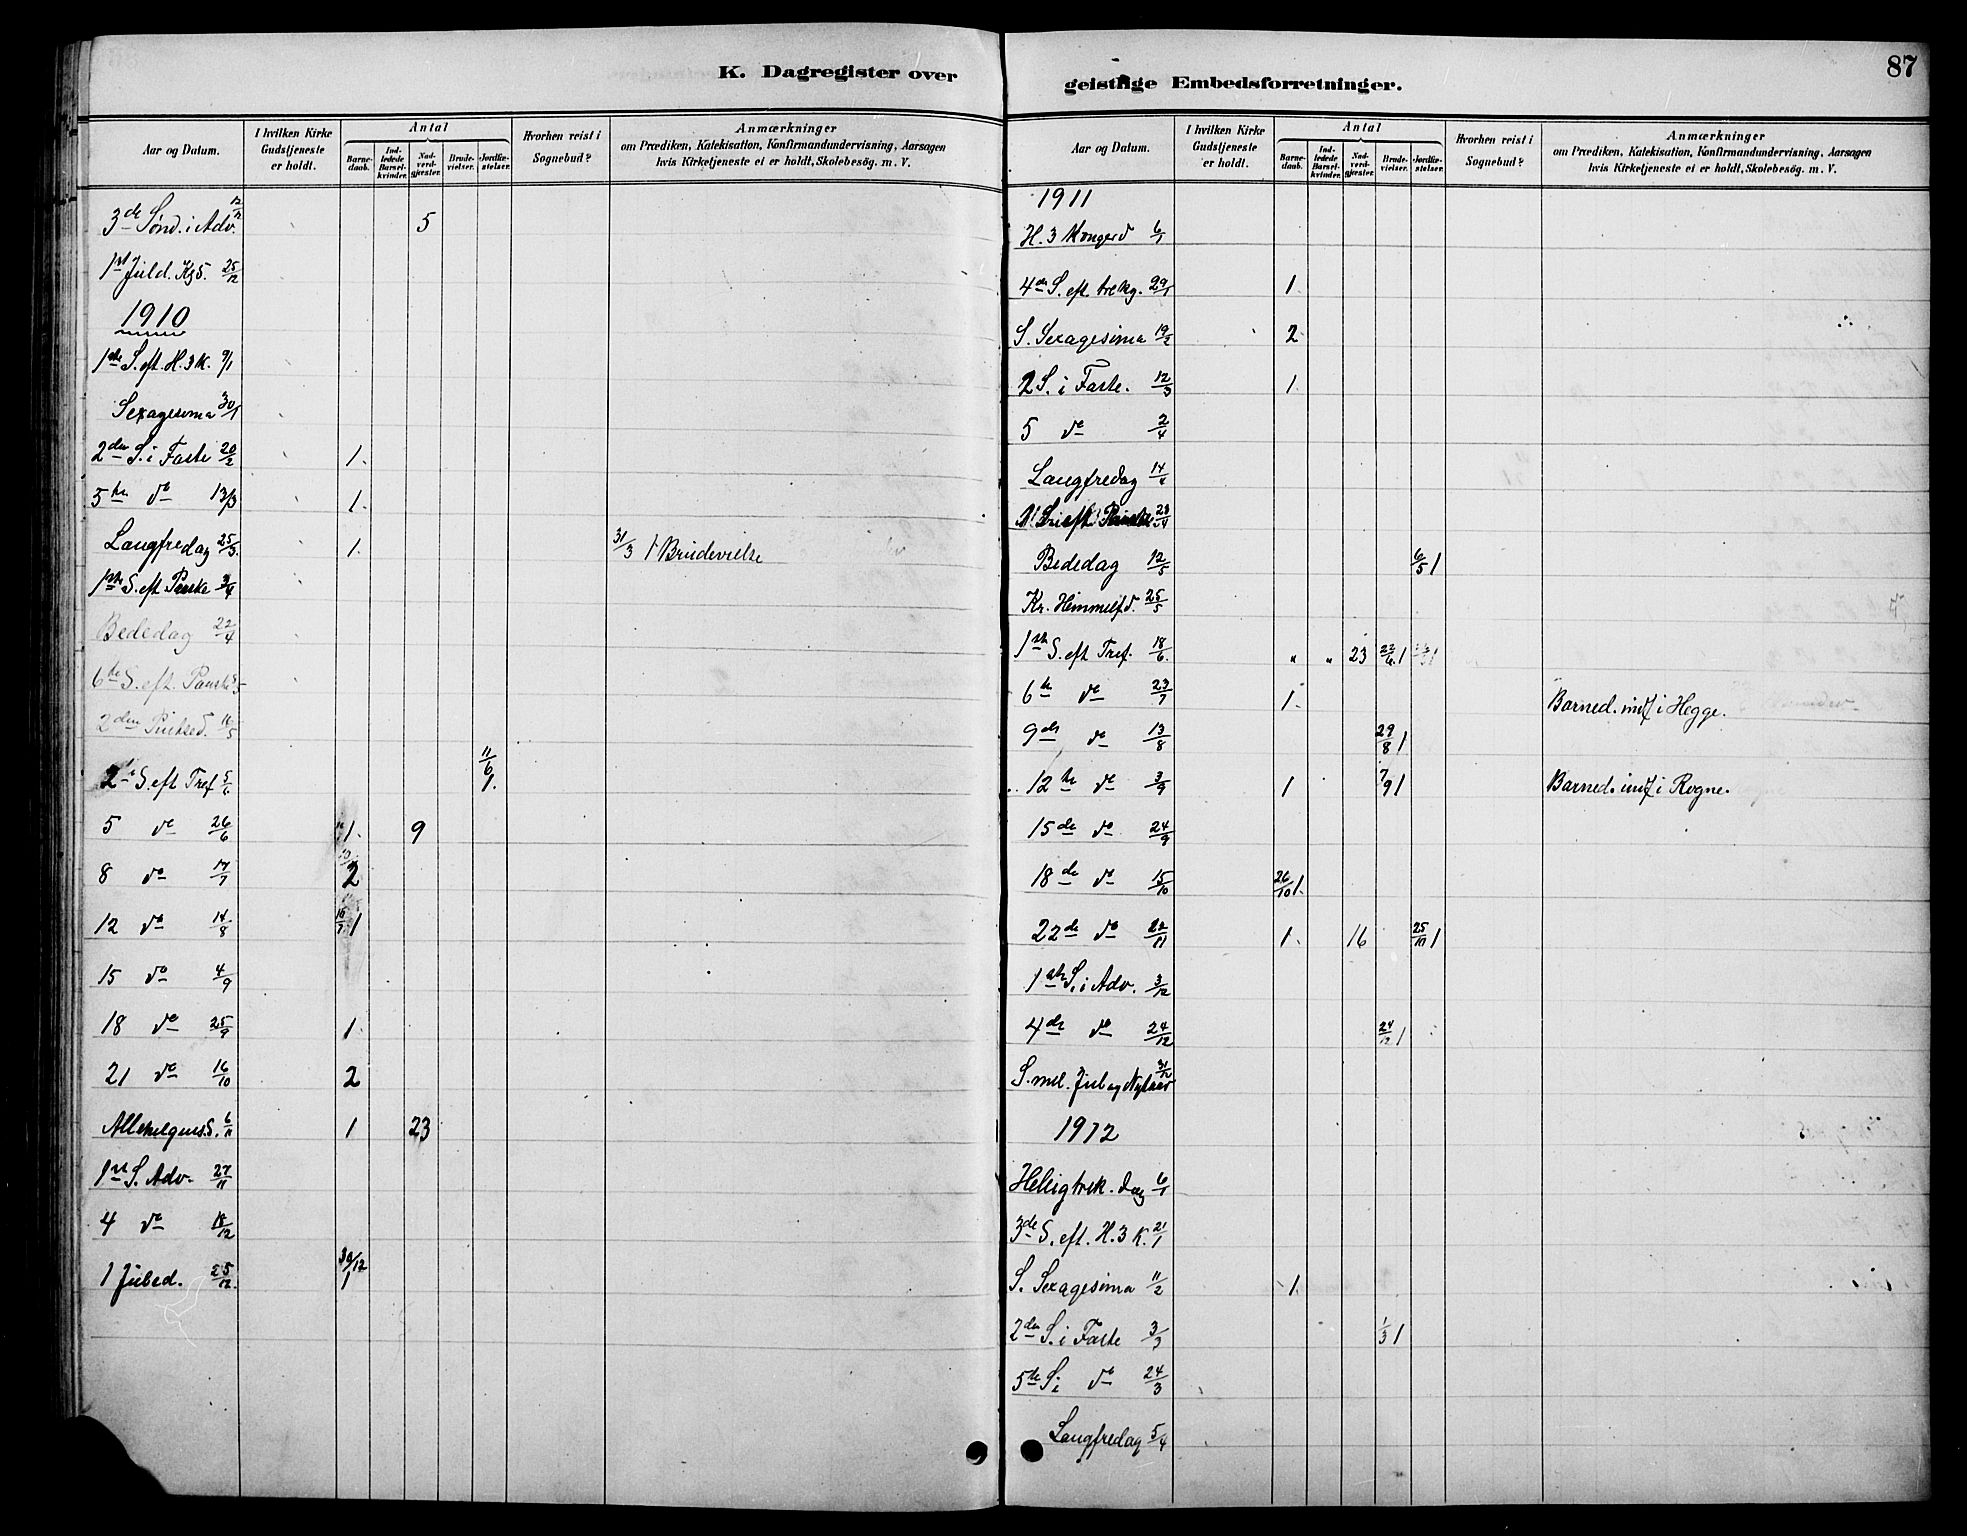 K. Dagregister over
Aar og Datum.
I hvilken Kirke Gudstjeneste er holdt.
Antal
Barne-daab.
Ind-ledede Barsel-kvinder.
Nad-verd-gjester.
Brude-vielser.
Jordfæ-stelser.
Hvorhen reist i Sognebud?
Anmærkninger
om Prædiken, Katekisation, Konfirmandundervisning, Aarsagen
hvis Kirketjeneste ei er holdt, Skolebesøg. m. V.
3de Sønd. i Adv. 12/12 5
1st Juld. Kg S. 25/12
1910
1ste S. eft. H. 3 K. 9/1
Sexagesima 30/1
2den S. i Faste 20/2 1.
5te do 13/3 1.
Langfredag 25/3. 1. 31/3 1 Brudevielse
1ste S. eft Paaske 3/4
Bededag 22/4
6te S. eft. Paaske
2den Pintsed. 16/5
11/6
2 S. eft Tref 5/6 1.
5 do 26/6 1. 9
8 do 17/7 2
12 do 14/8 1
15 do 4/9
18 do 25/9 1.
21 do 16/10 2
Allehelgens S. 6/11 1 23
1ste S. Adv. 27/11
4 do 18/12
1 Juled. 25/12. 30/12 1
geistlige Embedsforretninger.
87
Aar og Datum.
I hvilken Kirke Gudstjeneste er holdt.
Antal
Barne-daab.
Ind-ledede Barsel-kvinder.
Nad-verd-gjester.
Brude-vielser.
Jordfæ-stelser.
Hvorhen reist i Sognebud?
Anmærkninger
om Prædiken, Katekisation, Konfirmandundervisning, Aarsagen
hvis Kirketjeneste ei er holdt, Skolebesøg. m. V.
1911
H. 3 Kongerd 6/1
4de S. eft. trekg. 29/1 1.
S. Sexagesima 19/2 2
2 S. i Faste. 12/3 1.
5 do 2/4
Langfredag 14/4
23/4
Bededag 12/5 6/5 1
Kr. Himmelf.d. 25/5
1ste S. eft Tref. 18/6. " " 23 1 1
6te do 23/7 1. Barned. indf i Hegge.
9de do 13/8 29/8 1
12te do 3/9 1 7/9 1 Barned. indf i Rogne.
15de do 24/9
18de do 15/10 26/10 1.
22de do 1. 16 1
1ste S. i Adv. 3/12
4de do 24/12 24/12 1
S. mel. Jul og Nytaar 31/12
1912
Helligtrek. dag 6/1
3de S. eft. H. 3 K. 21/1
S. Sexagesima 11/2 1.
2den S. i Faste 3/3 1/3 1
5te S i do 24/3
Langfredag 5/4